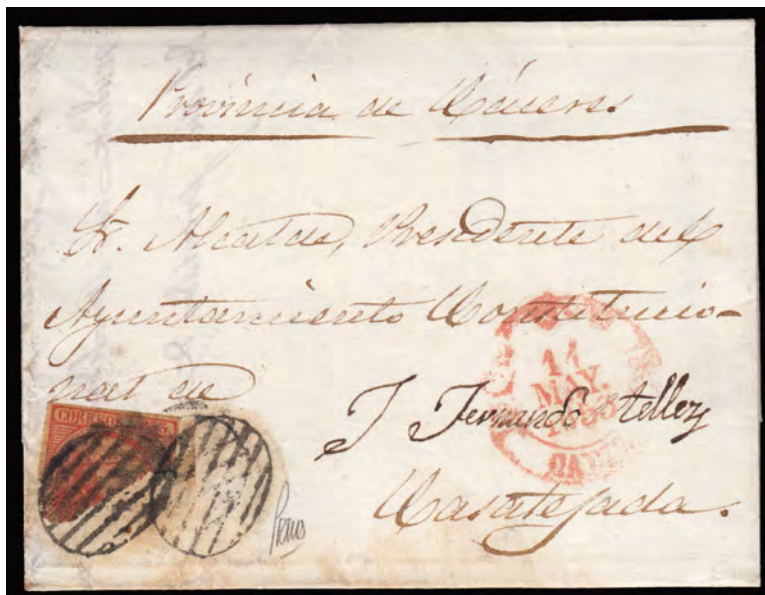 Provincia de Cáceres
Sr. Alcalde, Presidente del
Ayuntamiento Constitucio-
nal de
J Fernando Tellez
Casatejada.
CORREOS
11
MAY.
1853